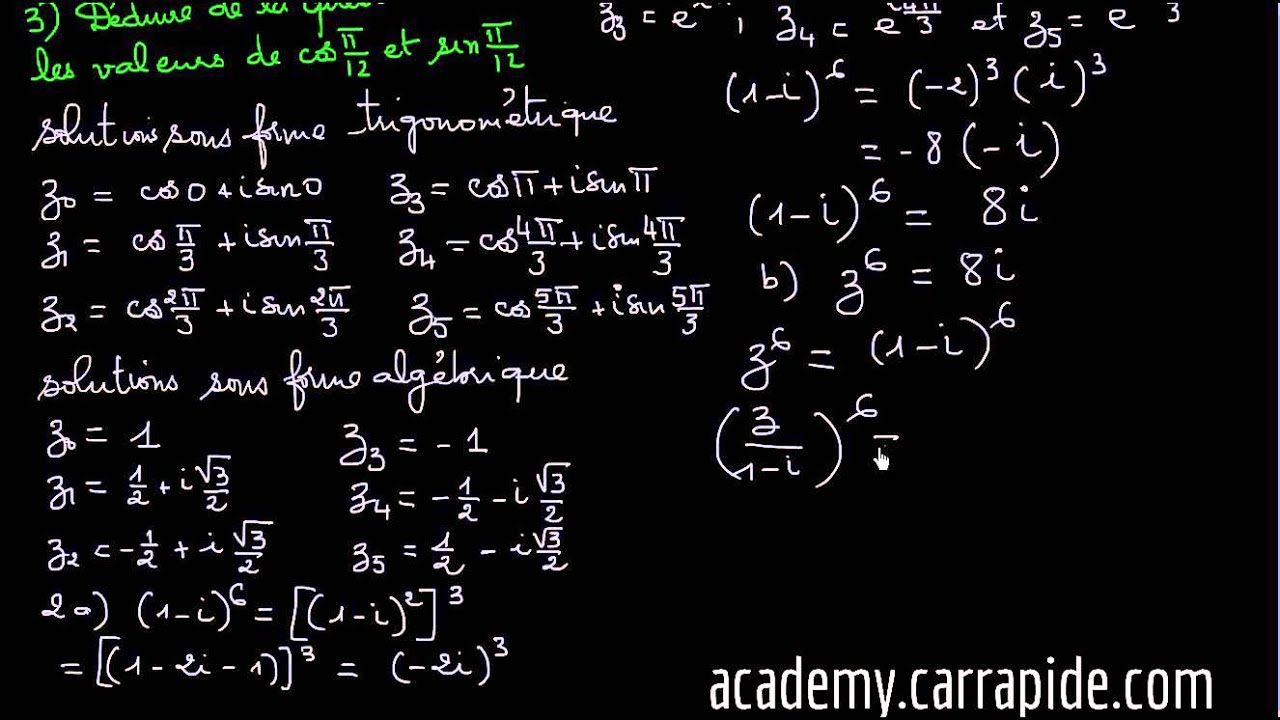 3) Déduire de la
les valeurs de cos π/12 et sin π/12
solutions sous forme trigonométrique
z₀ = cos 0 + i sin 0    z₃ = cos π + i sin π
z₁ = cos π/3 + i sin π/3    z₄ = cos 4π/3 + i sin 4π/3
z₂ = cos 2π/3 + i sin 2π/3    z₅ = cos 5π/3 + i sin 5π/3
solutions sous forme algébrique
z₀ = 1    z₃ = - 1
z₁ = 1/2 + i √3/2    z₄ = - 1/2 - i √3/2
z₂ = - 1/2 + i √3/2    z₅ = 1/2 - i √3/2
2 a) (1-i)⁶ = [(1-i)²]³
= [(1 - 2i - 1)]³ = (-2i)³
z₃ = e , z₄ = e^(i4π/3) et z₅ = e
(1-i)⁶ = (-2)³ (i)³
= - 8 (- i)
(1-i)⁶ = 8i
b) z⁶ = 8i
z⁶ = (1-i)⁶
(z/(1-i))⁶ =
academy.carrapide.com